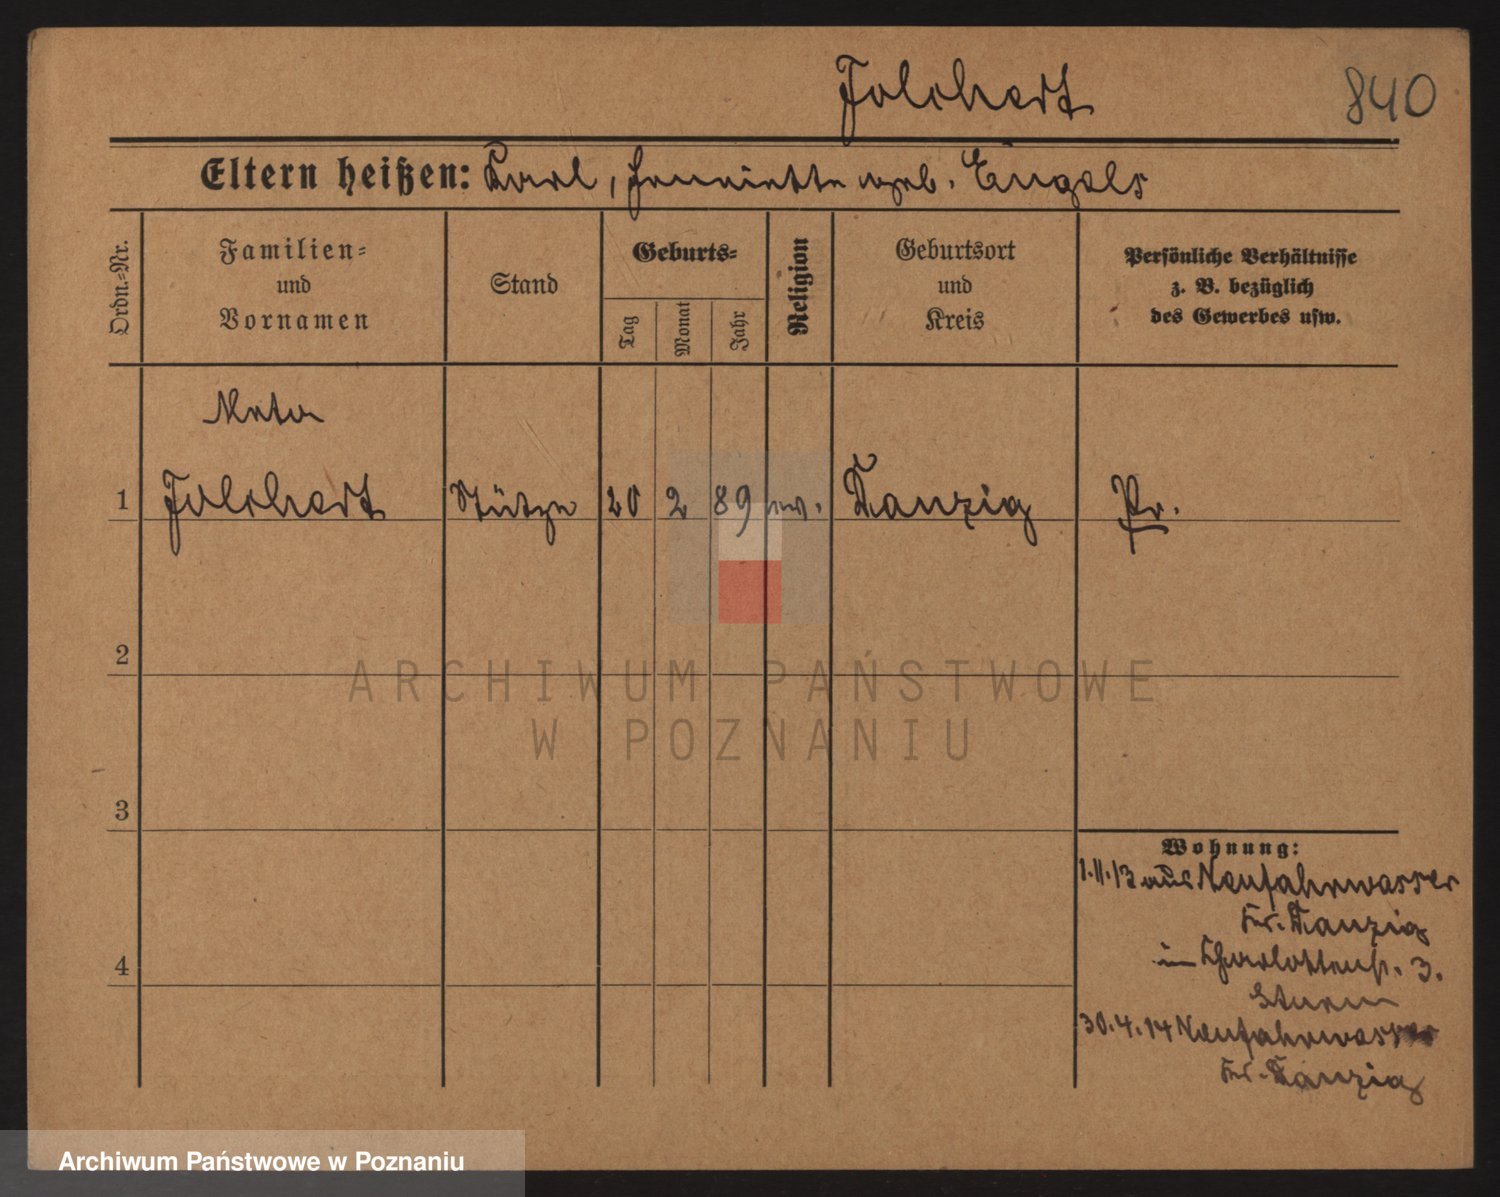 Jolchert
840
Eltern heißen: Karl, Henriette geb. Engels
Ordn.-Nr.
Familien-
und
Vornamen
Stand
Geburts-
Tag
Monat
Jahr
Religion
Geburtsort
und
Kreis
Persönliche Verhältnisse
z. B. bezüglich
des Gewerbes usw.
Meta
1 Jolchert Stütze 20 2 89 ev. Danzig Pr.
2
3
4
Wohnung:
1.11.13 aus Neufahrwasser
Kr. Danzig
in Charlottenstr. 3.
Sturm
30.4.14 Neufahrwasser
Kr. Danzig
ARCHIWUM PAŃSTWOWE
W POZNANIU
Archiwum Państwowe w Poznaniu